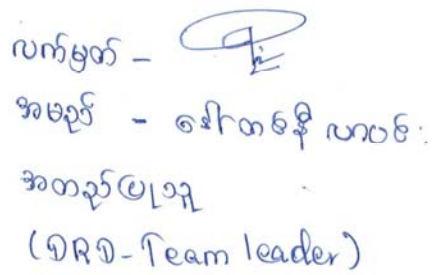 လက်မှတ် -
အမည် - ဒေါ်တစ်နီ လာပစ်း
အတည်ပြုသူ
(DRD-Team leader)